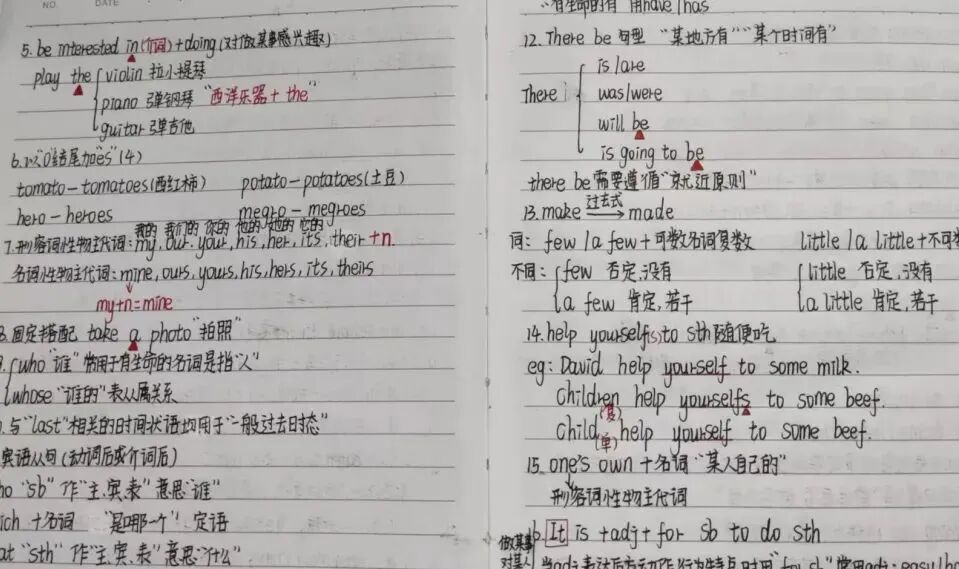 NO.
DATE
5. be interested in(介词)+doing(对做某事感兴趣)
play the violin 拉小提琴
piano 弹钢琴 "西洋乐器+the"
guitar 弹吉他
6. 以"O"结尾加"es"(4)
tomato-tomatoes(西红柿) potato-potatoes(土豆)
hero-heroes megro-megroes
我的 我们的 你的 他的 她的 它的
7.形容词性物主代词:my, our, your, his, her, its, their +n.
名词性物主代词:mine, ours, yours, his, hers, its, theirs
my+n=mine
8.固定搭配 take a photo "拍照"
who "谁" 常用于有生命的名词是指"人"
whose "谁的" 表从属关系
与"last"相关的时间状语均用于"一般过去时态"
宾语从句(动词后或介词后)
"sb" 作"主.宾.表" 意思"谁"
+名词 "是哪一个" 定语
"sth" 作"主.宾.表" 意思"什么"
有生命的有 用have/has
12. There be 句型 "某地方有" "某个时间有"
There is/are
was/were
will be
is going to be
there be 需要遵循"就近原则"
13. make 过去式→ made
词: few/a few+可数名词复数 little/a little+不可数
不同: few 否定,没有 little 否定,没有
a few 肯定,若干 a little 肯定,若干
14. help yourself(s) to sth 随便吃
eg: David help yourself to some milk.
Children(复) help yourselfs to some beef.
Child(单) help yourself to some beef.
15. one's own +名词 "某人自己的"
形容词性物主代词
It is +adj+ for sb to do sth
做某事
对某人